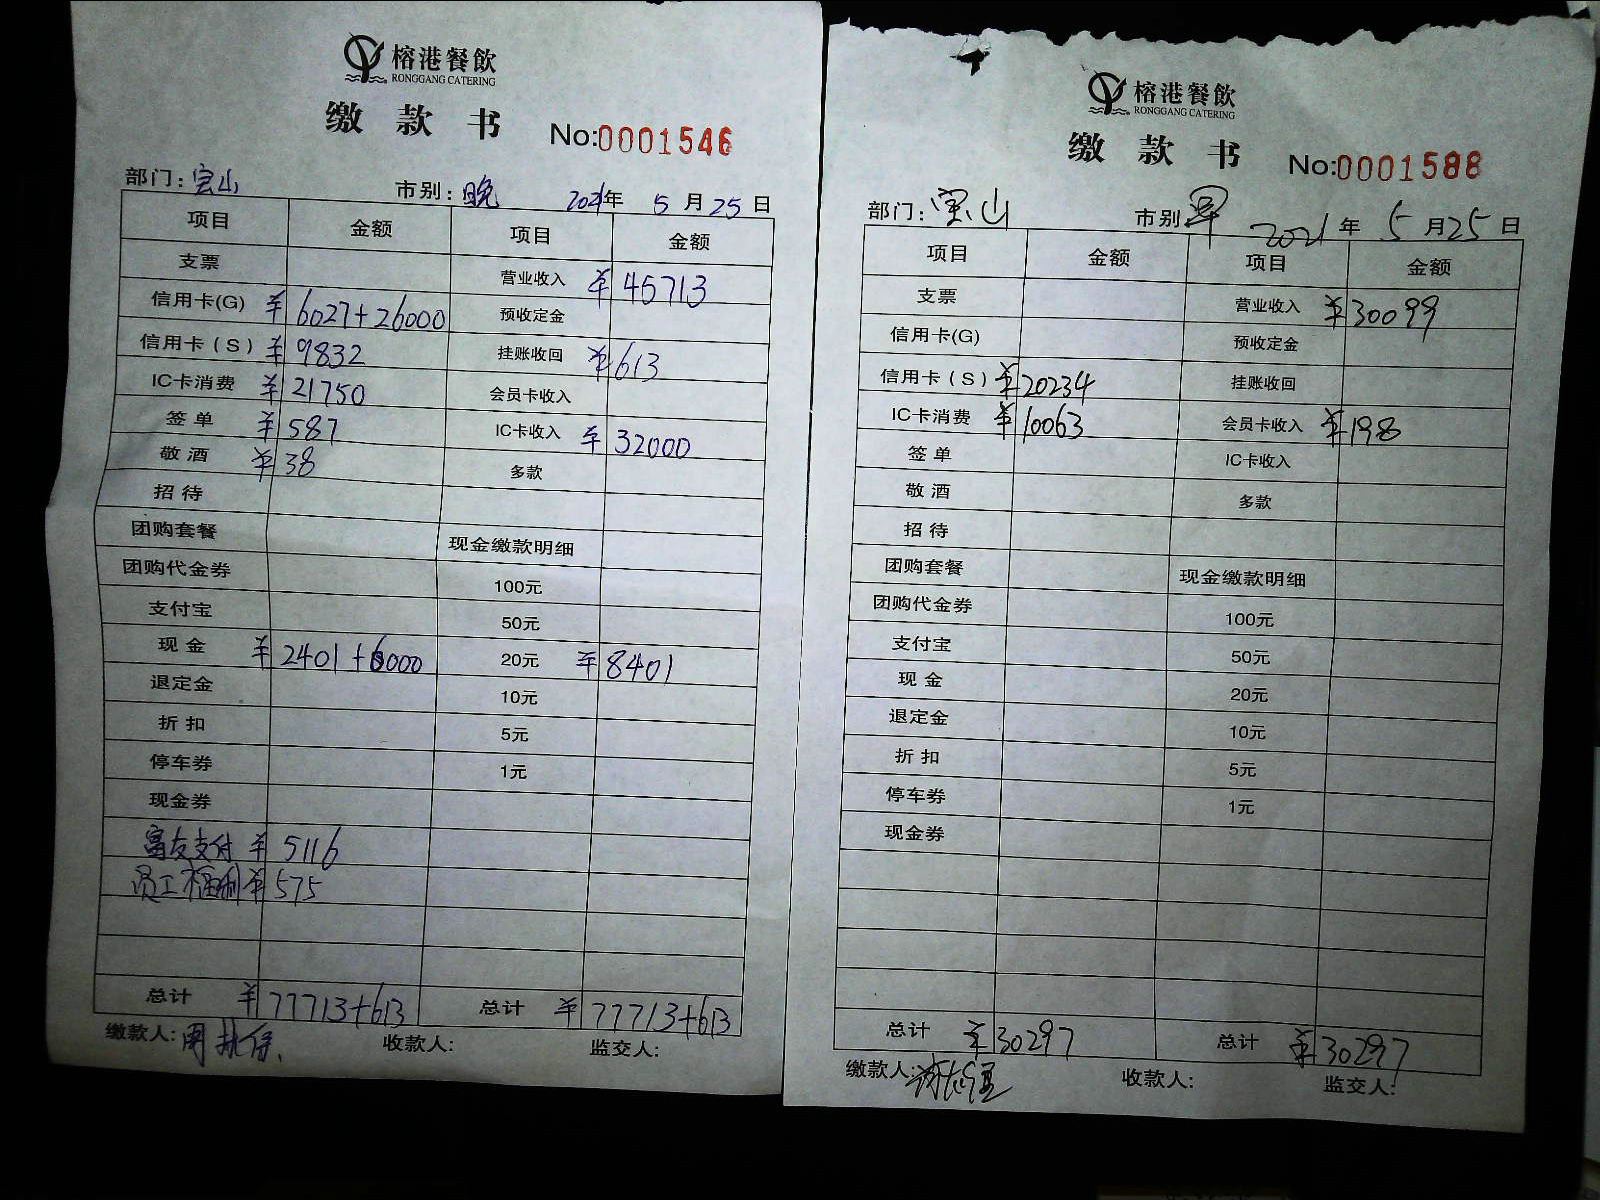 榕港餐飲
RONGGANG CATERING
缴款书 No:0001546
部门:宝山 市别:晚 2021年 5月25日
项目 金额 项目 金额
支票 营业收入 ¥45713
信用卡(G) ¥6027+26000 预收定金
信用卡(S) ¥9832 挂账收回 ¥613
IC卡消费 ¥21750 会员卡收入
签单 ¥587 IC卡收入 ¥32000
敬酒 ¥38 多款
招待
团购套餐 现金缴款明细
团购代金券 100元
支付宝 50元
现金 ¥2401+6000 20元 ¥8401
退定金 10元
折扣 5元
停车券 1元
现金券
富友支付 ¥5116
员工福利 ¥575
总计 ¥77713+613 总计 ¥77713+613
缴款人: 收款人: 监交人:
榕港餐飲
RONGGANG CATERING
缴款书 No:0001588
部门:宝山 市别 早 2021年 5月25日
项目 金额 项目 金额
支票 营业收入 ¥30099
信用卡(G) 预收定金
信用卡(S) ¥20234 挂账收回
IC卡消费 ¥10063 会员卡收入 ¥198
签单 IC卡收入
敬酒 多款
招待
团购套餐 现金缴款明细
团购代金券 100元
支付宝 50元
现金 20元
退定金 10元
折扣 5元
停车券 1元
现金券
总计 ¥30297 总计 ¥30297
缴款人: 收款人: 监交人: